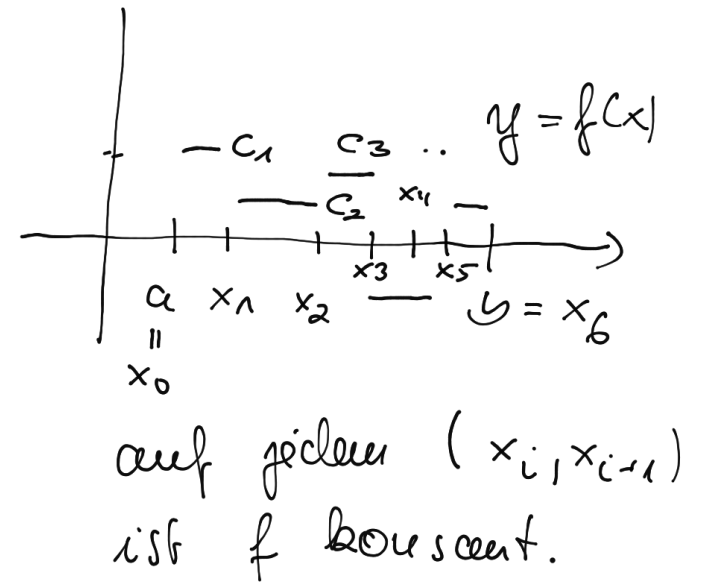 c₁ c₃ .. y = f(x)
c₂ x₄
x₃ x₅
a x₁ x₂ b = x₆
=
x₀
auf jedem (xᵢ, xᵢ₊₁)
ist f konstant.